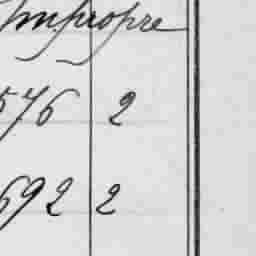 Impropre
576 2
692 2